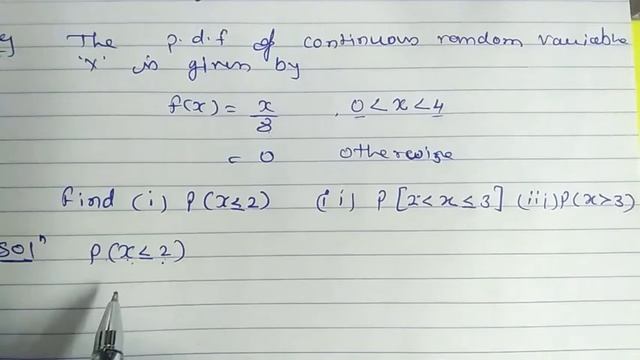 eg The p.d.f of continuous random variable
'x' is given by
f(x) = x/8 , 0 < x < 4
= 0 otherwise
find (i) P(x ≤ 2) (ii) P[2 < x ≤ 3] (iii) P(x > 3)
Solⁿ P(x ≤ 2)